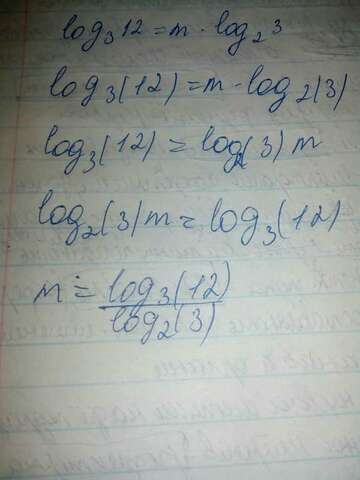 log₃12=m·log₂3
log₃(12)=m·log₂(3)
log₃(12)=log₂(3)m
log₂(3)m=log₃(12)
m=log₃(12)
log₂(3)